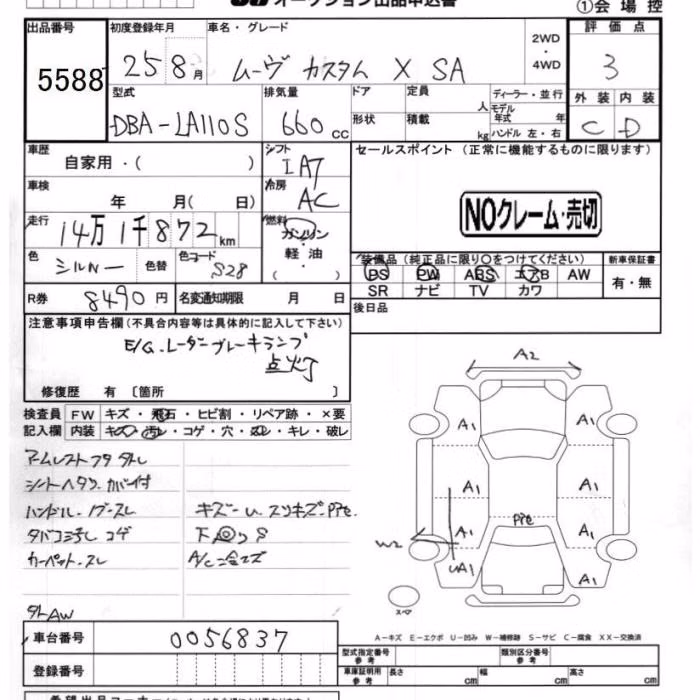 オークション出品申込書
①会場控
出品番号 初度登録年月 車名・グレード 2WD ・ 4WD 評価点
5588 25 8月 ムーヴ カスタム X SA 3
型式 排気量 ドア 定員 人 ディーラー・並行 外装 内装
DBA-LA110S 660 cc 形状 積載 kg モデル年式 年 ハンドル 左・右 C D
車歴 シフト セールスポイント (正常に機能するものに限ります)
自家用・( ) IAT
車検 冷房
年 月( 日) AC NOクレーム・売切
走行 燃料
14万1千872km ガソリン
色 色替 色コード 軽油 装備品 (純正品に限り○をつけてください) 新車保証書
シルバー S28 ( ) PS PW ABS エアB AW 有・無
R券 8490円 名変通知期限 月 日 SR ナビ TV カワ
後日品
注意事項申告欄(不具合内容等は具体的に記入して下さい)
E/G.レーダーブレーキランプ
点火丁
修復歴 有 〔箇所 〕
A2
検査員 FW キズ・飛石・ヒビ割・リペア跡・×要
記入欄 内装 キズ・汚レ・コゲ・穴・スレ・キレ・破レ
アームレストフタ外レ
シートヘタリ.カバー付
ハンドル.ノブースレ
タバコ汚レ コゲ
カーペット.スレ
外AW
キズーU.スリキズ.P跡.
下回りS
A/C=会スズ
A1 A1
A1 A1
P跡
A1 A1
W2
UA1 A1
スペア
A-キズ E-エクボ U-凹み W-補修跡 S-サビ C-腐食 XX-交換済
車台番号 0056837
型式指定番号 参考 類別区分番号 参考
登録番号
車庫証明用 参考 長さ cm 幅 cm 高さ cm